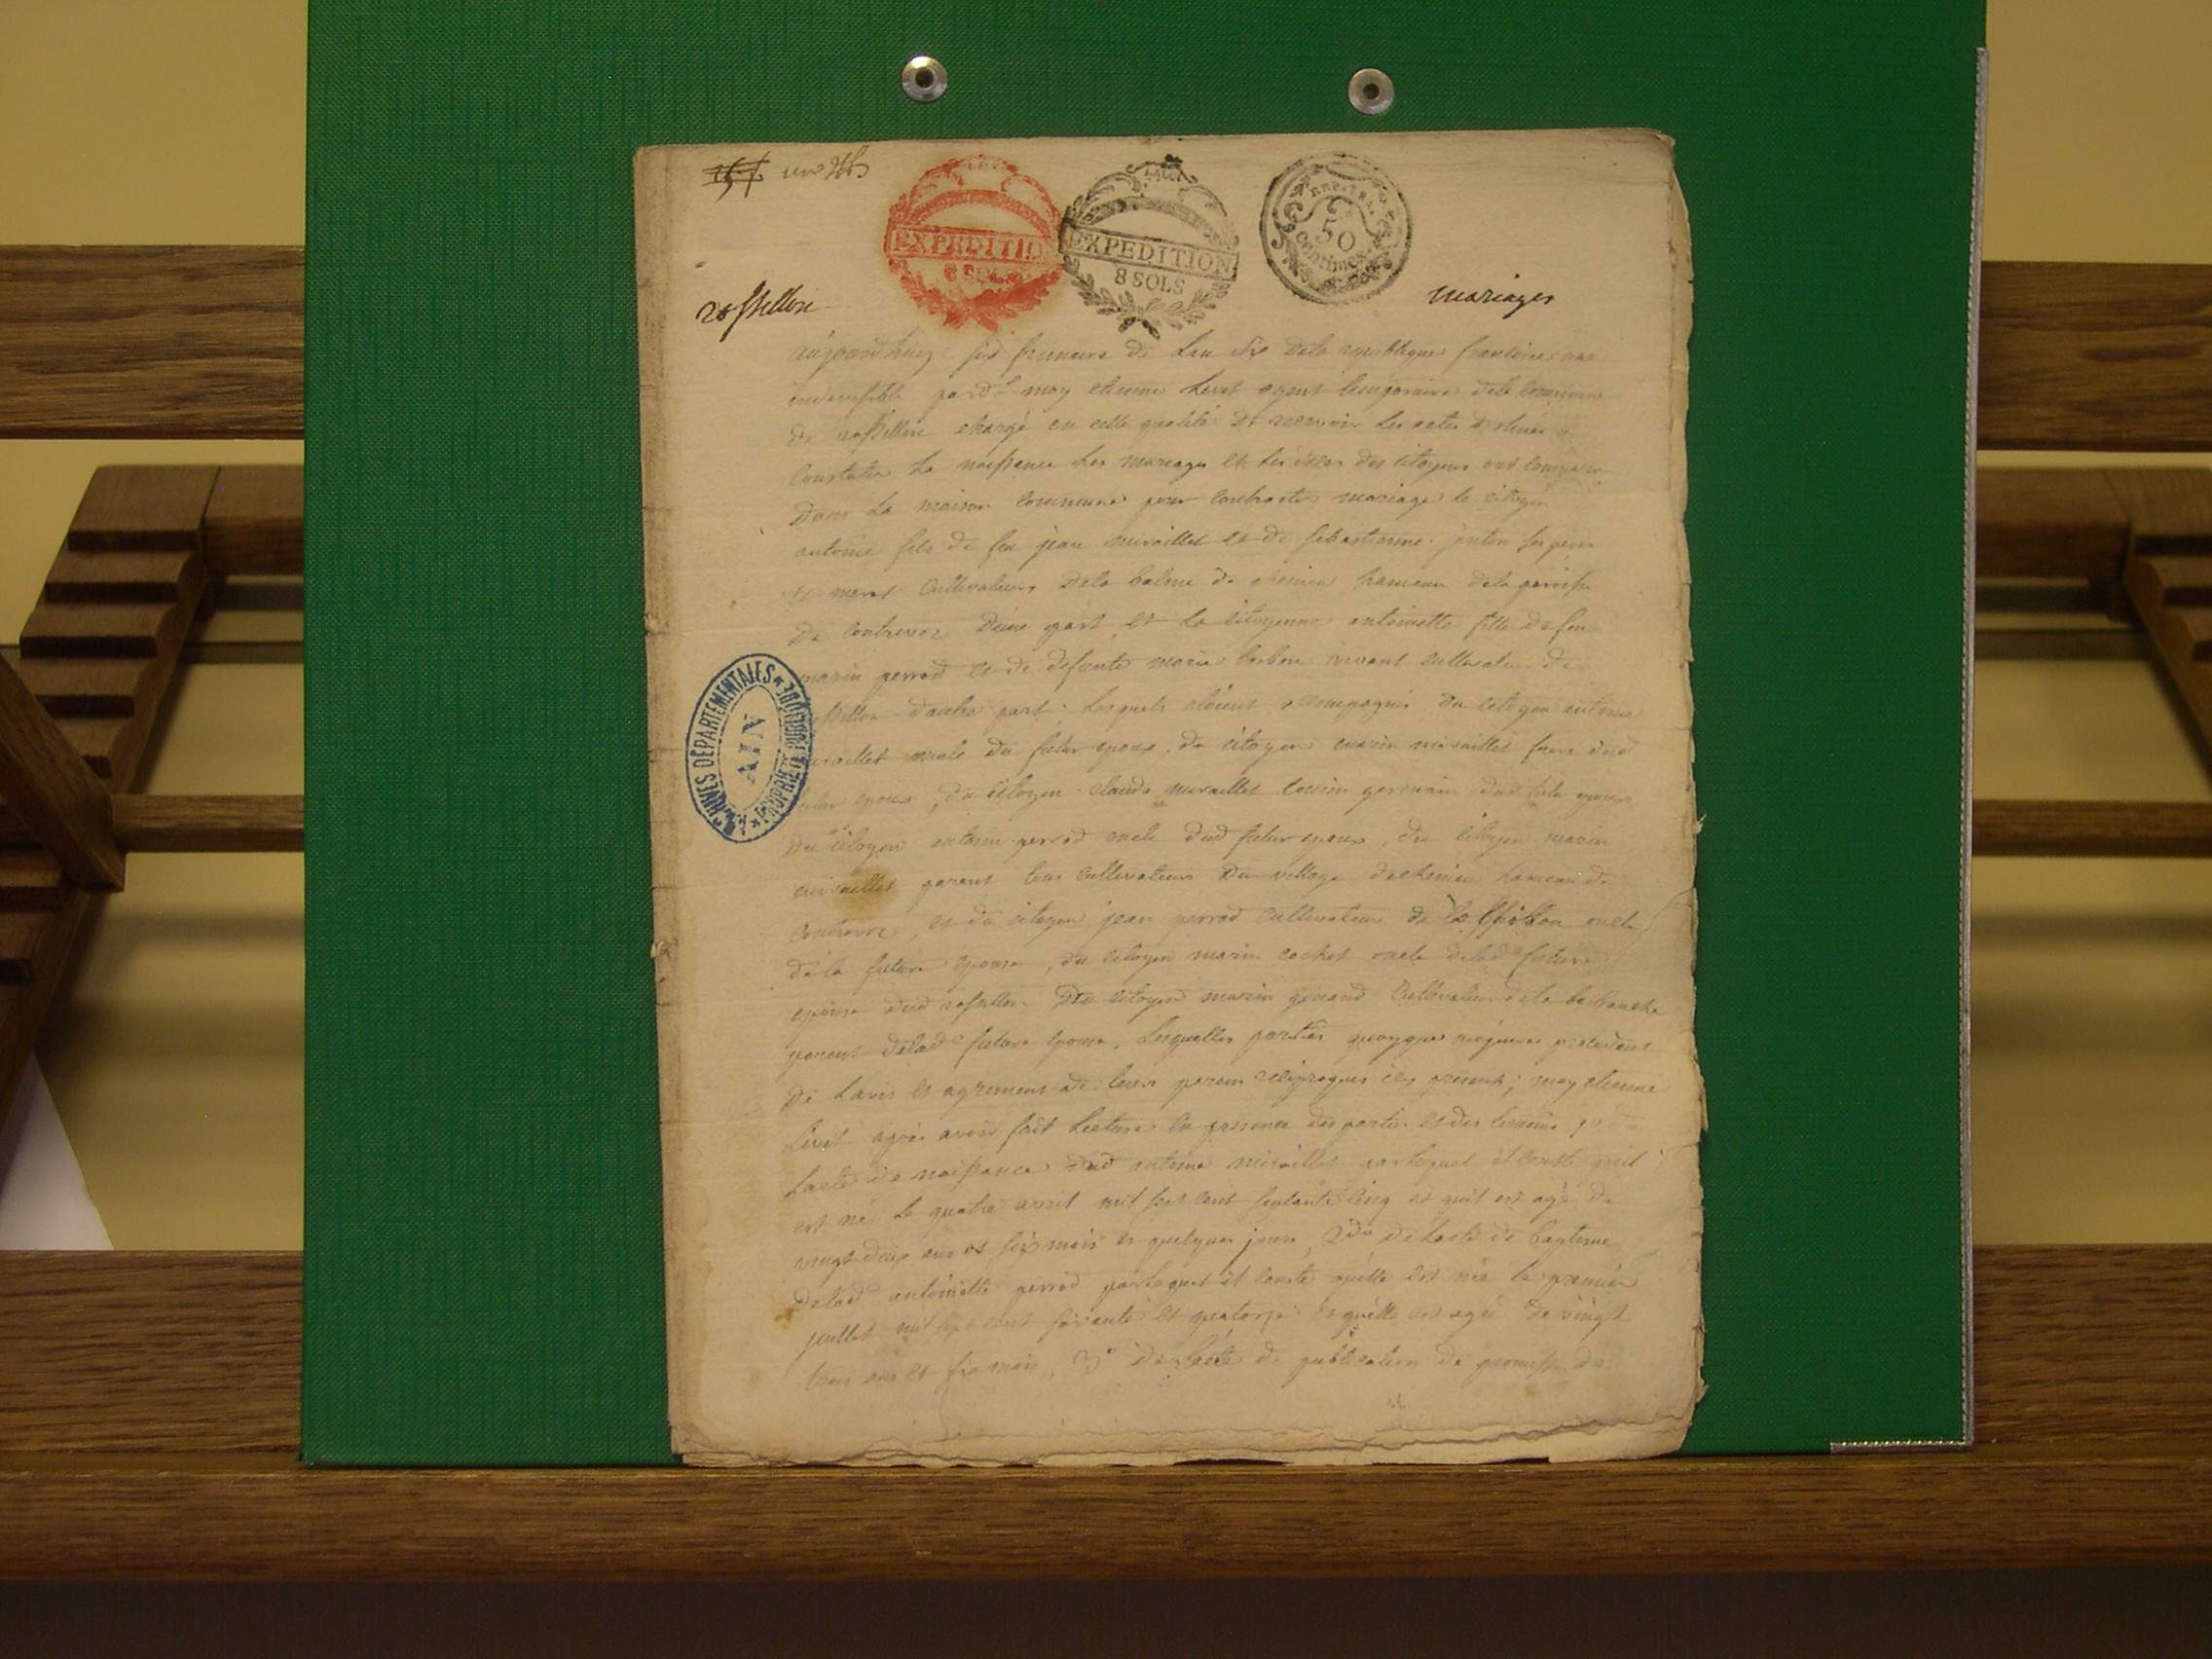 un 7bis
LA LOI
EXPEDITION
8 SOLS
LA LOI
EXPEDITION
8 SOLS
REP. FRA.
50
centimes
rossillon
mariages
aujourdhuy six frimaire de lan six dela republique francoise une
indivisible pard^t moy etienne Livet agent temporaire dela commune
de rossillon chargé en cette qualité de recevoir Les actes destinés a
Constater La naissance Les mariages et Les déces des citoyens ont comparu
Dans La maison commune pour contracter mariage le citoyen
antoine fils de feu jean miraillet et de sebastienne ses pere
et meres Cultivateurs Dela balme de hameau dela paroisse
De contrevoz Dune part et La citoyenne antoinette fille de feu
marin perrod et de defunte marie vivant cultivateur de
rossillon dautre part, Lesquels étoient accompagnés du citoyen antoine
miraillet oncle du futur epoux, du citoyen marin miraillet frere dud
futur epoux, du citoyen claude miraillet cousin germain dud futur epoux
Du citoyen antoine perrod oncle dud futur epoux, du citoyen marin
miraillet parent tous cultivateurs Du village hameau de
contrevoz, et du citoyen jean perrod cultivateur de Rossillon oncle
dela future epouse, du citoyen marin cochet oncle delad future
epouse dud rossillon Du citoyen marin genand Cultivateur dela
parent delad future epouse, Lesquelles parties quoyque majeures procedent
De Lavis et agrement de leurs parens reciproques icy presents; moy etienne
Livet après avoir fait Lecture en presence des parties et des temoins 1° de
Lacte de naissance dud antoine miraillet par lequel il conste quil
est né Le quatre avril mil sept cent septante cinq et quil est agé de
vingt deux ans et six mois et quelques jours, 2do de Lacte de bapteme
delad antoinette perrod par lequel il conste quelle est née le premier
juillet mil sept cent soixante et quatorze et quelle est agée de vingt
trois ans et six mois, 3° de Lacte de publication de promesse de
ARCHIVES DÉPARTEMENTALES
AIN
PROPRIÉTÉ PUBLIQUE